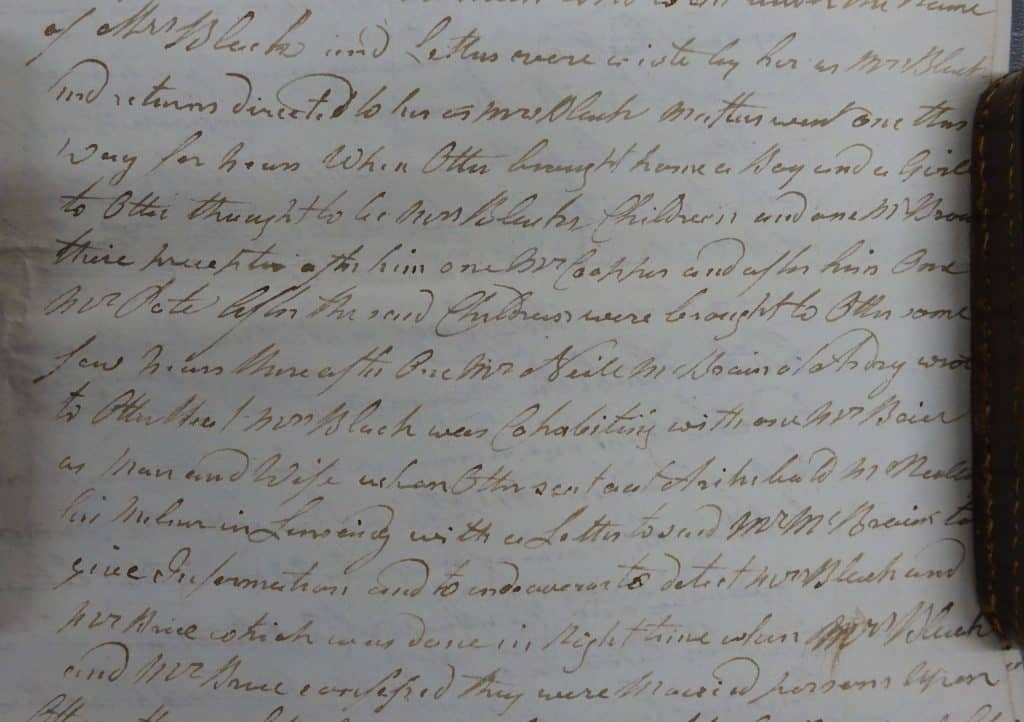 under the Name
of Mrs Black and Letters were wrote by her as Mrs Black
and returns directed to her as Mrs Black Matters went one this
Way for Years When Otter brought home a Boy and a Girl
to Otter thought to be Mrs Blacks Children and one Mr Brown
there preceptor after him one Mr Cooper and after him One
Mr Pate After the said Children were brought to Otter some
few Years thereafter One Mr Neill McBrain wrote
to Otter that Mrs Black was Cohabiting with one Mr Brice
as Man and Wife when Otter sent out Archibald McNeill
his in with a Letter to said Mr McBrain to
give Information and to endeavour to detect Mrs Black and
Mr Brice which was done in Right time when Mrs Black
and Mr Brice confessed they were Maried persons Upon